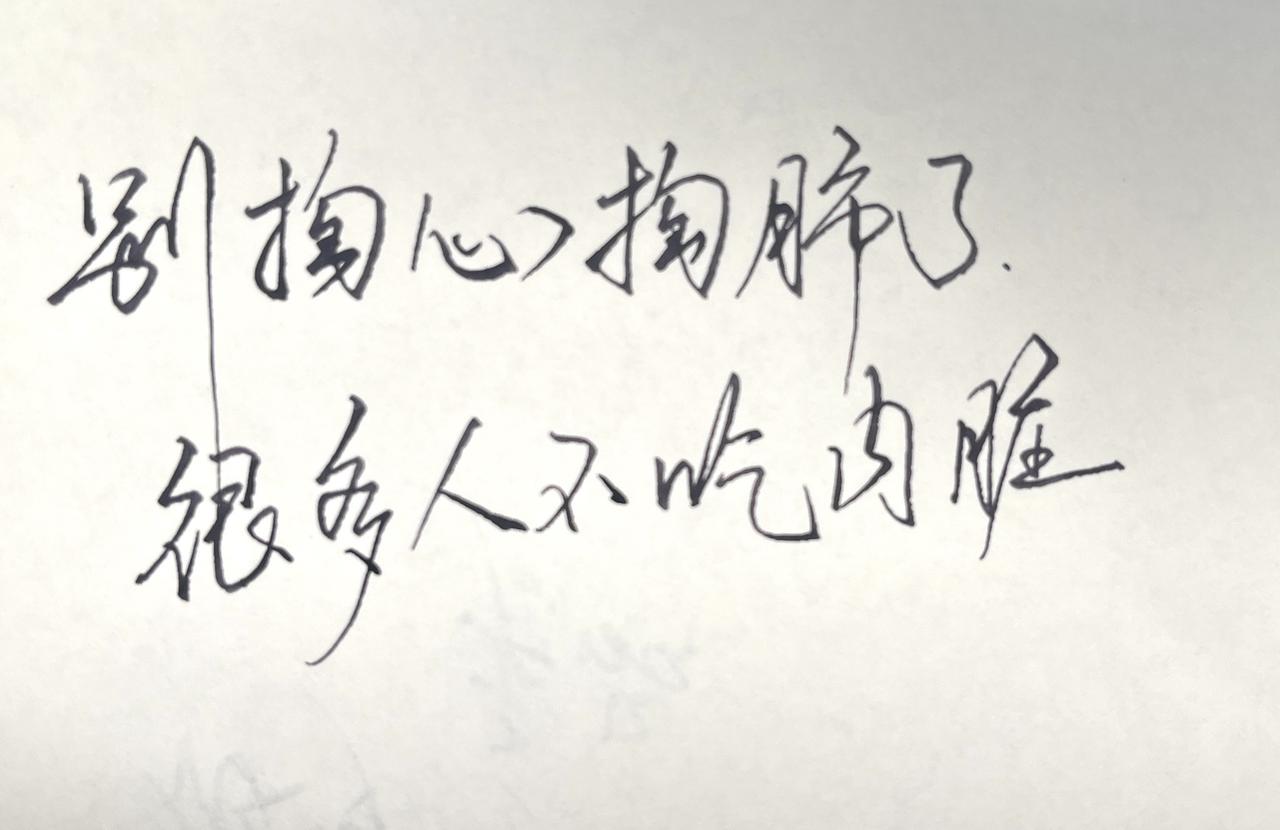 别掏心掏肺了.
很多人不吃内脏